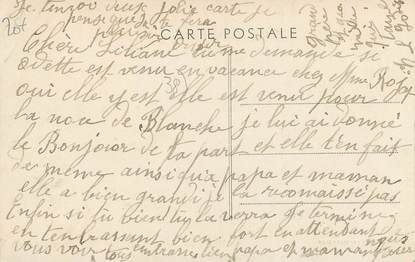 Je t'envoi deux jolie carte je
pense que
CARTE POSTALE
Chère Liliane tu me demande si
Odette est venu en vacance chez Mme Roj
oui elle y est elle est venu pour
la noce de Blanche je lui ai donné
le Bonjour de ta part et elle t'en fait
de même ainsi que papa et maman
elle a bien grandi je la reconnaissé pas
Enfin si tu bien tu la verra je termine
en t'embrassant bien fort en attendant
vous voir tous papa et maman
grand
mère